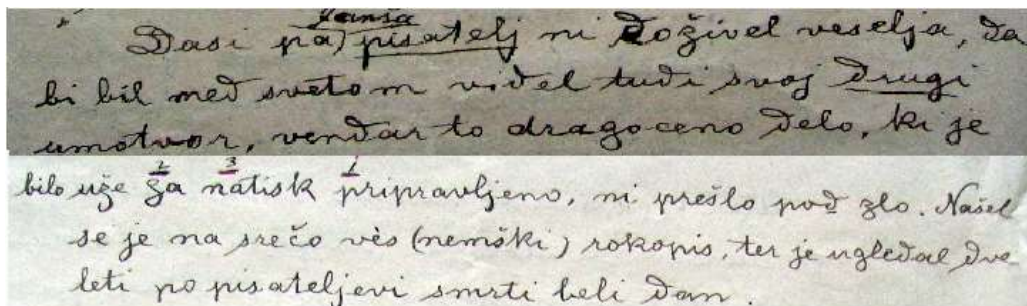 Janša
Dasi pa) pisatelj ni doživel veselja, da
bi bil med svetom videl tudi svoj drugi
umotvor, vendar to dragoceno delo, ki je
2 3 1
bilo uže za natisk pripravljeno, ni prešlo pod zlo. Našel
se je na srečo vès (nemški) rokopis, ter je ugledal dve
leti po pisateljevi smrti beli dan.